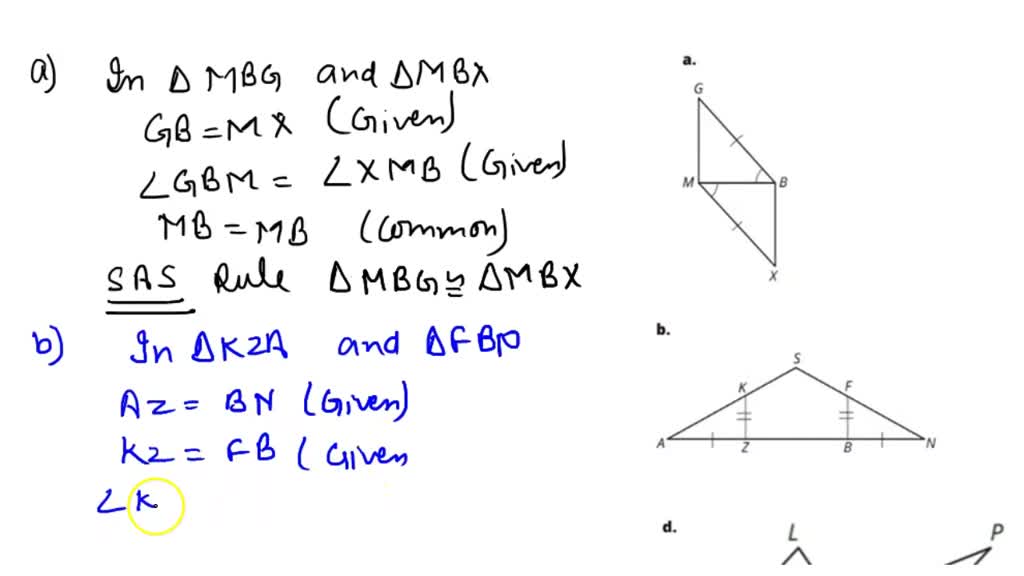 a) In Δ MBG and ΔMBX
GB = MX (Given)
∠GBM = ∠XMB (Given)
MB = MB (Common)
SAS Rule ΔMBG ≅ ΔMBX
b) In ΔKZA and ΔFBN
AZ = BN (Given)
KZ = FB (Given
∠K
a.
G
M B
X
b.
S
K F
A Z B N
d. L P